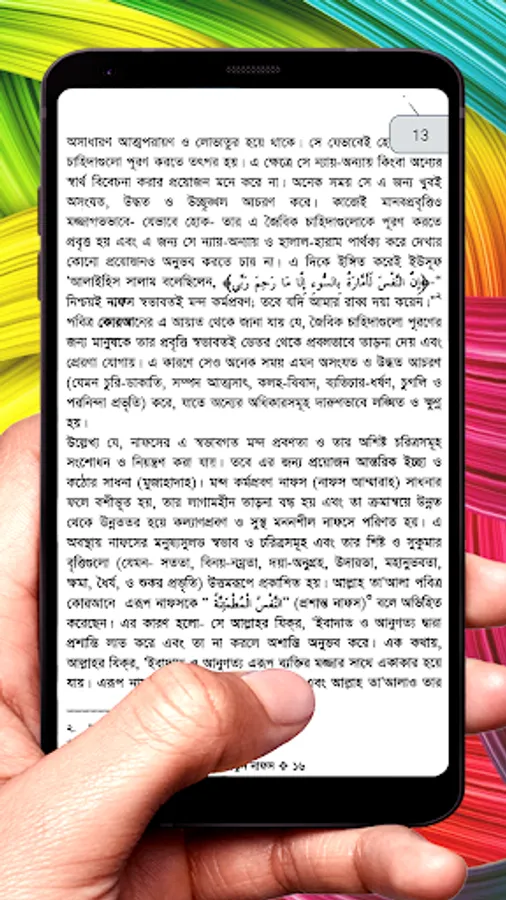 13
অসাধারণ আত্মপরায়ণ ও লোভাতুর হয়ে থাকে। সে যেভাবেই
চাহিদাগুলো পূরণ করতে তৎপর হয়। এ ক্ষেত্রে সে ন্যায়-অন্যায় কিংবা অন্যের
স্বার্থ বিবেচনা করার প্রয়োজন মনে করে না। অনেক সময় সে এ জন্য খুবই
অসংযত, উদ্ধত ও উচ্ছৃঙ্খল আচরণ করে। কাজেই মানবপ্রবৃত্তিও
মজ্জাগতভাবে- যেভাবে হোক- তার এ জৈবিক চাহিদাগুলোকে পূরণ করতে
প্রবৃত্ত হয় এবং এ জন্য সে ন্যায়-অন্যায় ও হালাল-হারাম পার্থক্য করে দেখার
কোনো প্রয়োজনও অনুভব করতে চায় না। এ দিকে ইঙ্গিত করেই ইউসূফ
'আলাইহিস সালাম বলেছিলেন, ﴿إِنَّ النَّفْسَ لَأَمَّارَةٌ بِالسُّوءِ إِلَّا مَا رَحِمَ رَبِّي﴾-"
নিশ্চয়ই নাফস স্বভাবতই মন্দ কর্মপ্রবণ; তবে যদি আমার রাব্ব দয়া করেন।"২
পবিত্র কোরআনের এ আয়াত থেকে জানা যায় যে, জৈবিক চাহিদাগুলো পূরণের
জন্য মানুষকে তার প্রবৃত্তি স্বভাবতই ভেতর থেকে প্রবলভাবে তাড়না দেয় এবং
প্রেরণা যোগায়। এ কারণে সেও অনেক সময় এমন অসংযত ও উদ্ধত আচরণ
(যেমন চুরি-ডাকাতি, সম্পদ আত্মসাৎ, কলহ-বিবাদ, ব্যভিচার-ধর্ষণ, চুগলি ও
পরনিন্দা প্রভৃতি) করে, যাতে অন্যের অধিকারসমূহ দারুণভাবে লঙ্ঘিত ও ক্ষুণ্ণ
হয়।
উল্লেখ্য যে, নাফসের এ স্বভাবগত মন্দ প্রবণতা ও তার অশিষ্ট চরিত্রসমূহ
সংশোধন ও নিয়ন্ত্রণ করা যায়। তবে এর জন্য প্রয়োজন আন্তরিক ইচ্ছা ও
কঠোর সাধনা (মুজাহাদাহ)। মন্দ কর্মপ্রবণ নাফস (নাফস আম্মারাহ) সাধনার
ফলে বশীভূত হয়, তার লাগামহীন তাড়না বন্ধ হয় এবং তা ক্রমান্বয়ে উন্নত
থেকে উন্নততর হয়ে কল্যাণপ্রবণ ও সুস্থ মননশীল নাফসে পরিণত হয়। এ
অবস্থায় নাফসের মনুষ্যসুলভ স্বভাব ও চরিত্রসমূহ এবং তার শিষ্ট ও সুকুমার
বৃত্তিগুলো (যেমন- সততা, বিনয়-নম্রতা, দয়া-অনুগ্রহ, উদারতা, মহানুভবতা,
ক্ষমা, ধৈর্য, ও শুকর প্রভৃতি) উত্তমরূপে প্রকাশিত হয়। আল্লাহ তা'আলা পবিত্র
কোরআনে এরূপ নাফসকে " النَّفْسُ الْمُطْمَئِنَّةُ" (প্রশান্ত নাফস)৩ বলে অভিহিত
করেছেন। এর কারণ হলো- সে আল্লাহর যিক্‌র, 'ইবাদাত ও আনুগত্য দ্বারা
প্রশান্তি লাভ করে এবং তা না করলে অশান্তি অনুভব করে। এক কথায়,
আল্লাহর যিক্‌র, 'ইবাদাত ও আনুগত্য এরূপ ব্যক্তির মজ্জার সাথে একাকার হয়ে
যায়। এরূপ এবং আল্লাহ তা'আলাও তার
২.
নাফস ❖ ১৬